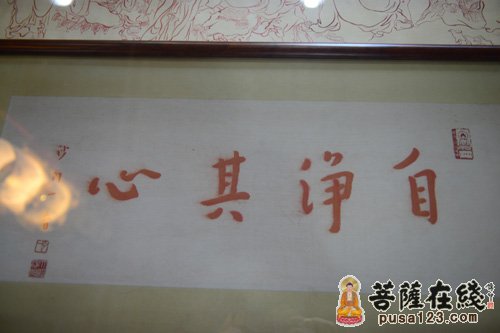 自淨其心
菩薩在綫
pusa123.com